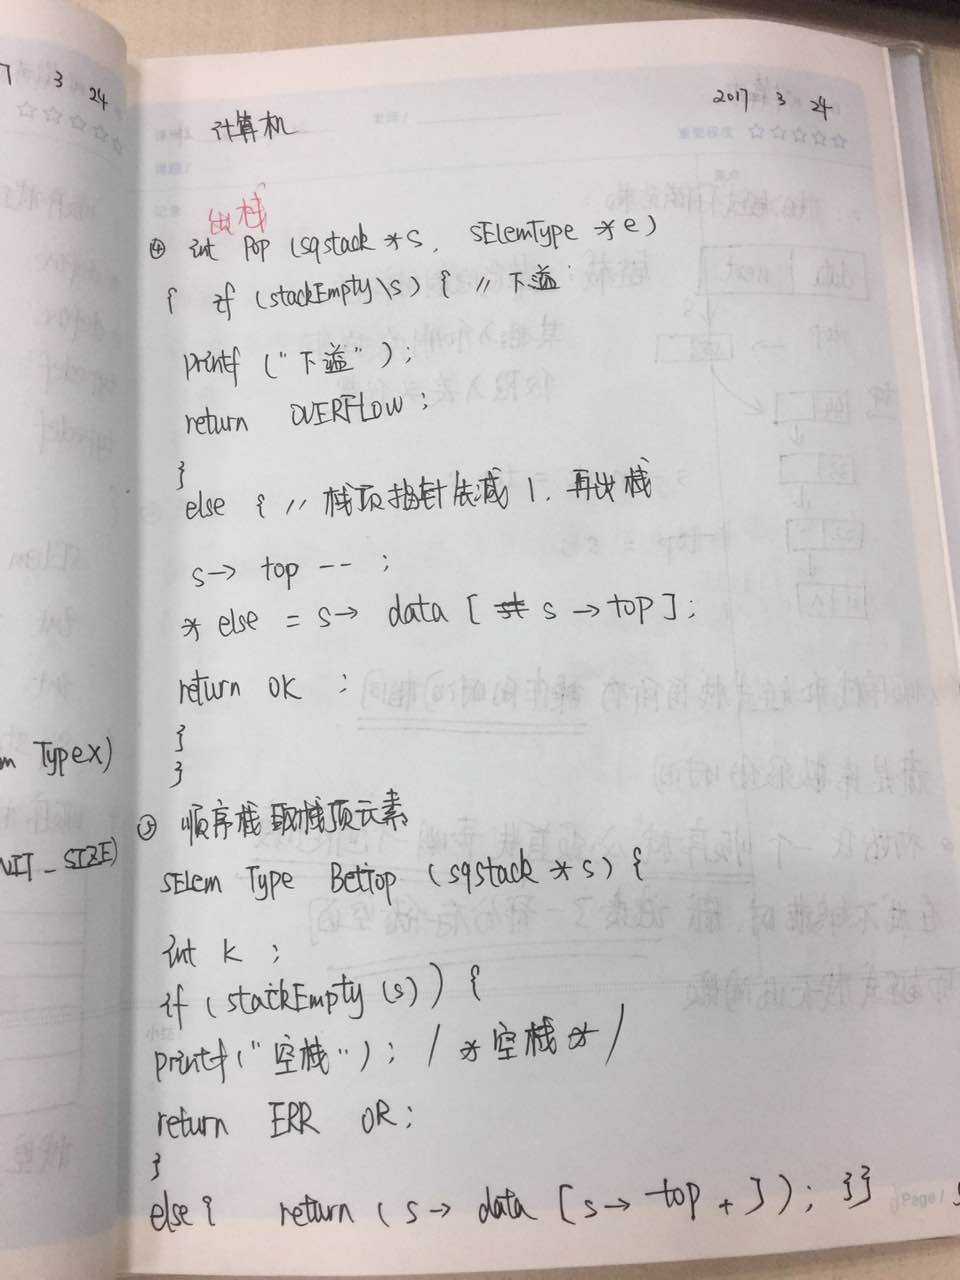 3 24
2017 3 24
计算机
出栈
④ int Pop (sqstack *s, sElemType *e)
{ if (stackEmpty\s) { // 下溢
printf ("下溢");
return OVERFLOW;
}
else { // 栈顶指针先减1, 再出栈
s→ top --;
* else = s→ data [ s →top];
return OK ;
}
}
Typex)
⑤ 顺序栈取栈顶元素
_SIZE)
SElem Type Bettop (sqstack *s) {
int k ;
if (stackEmpty (s)) {
printf("空栈"); /*空栈*/
return ERR OR;
}
else { return (s→ data [s→ top + ]); }}
Page /